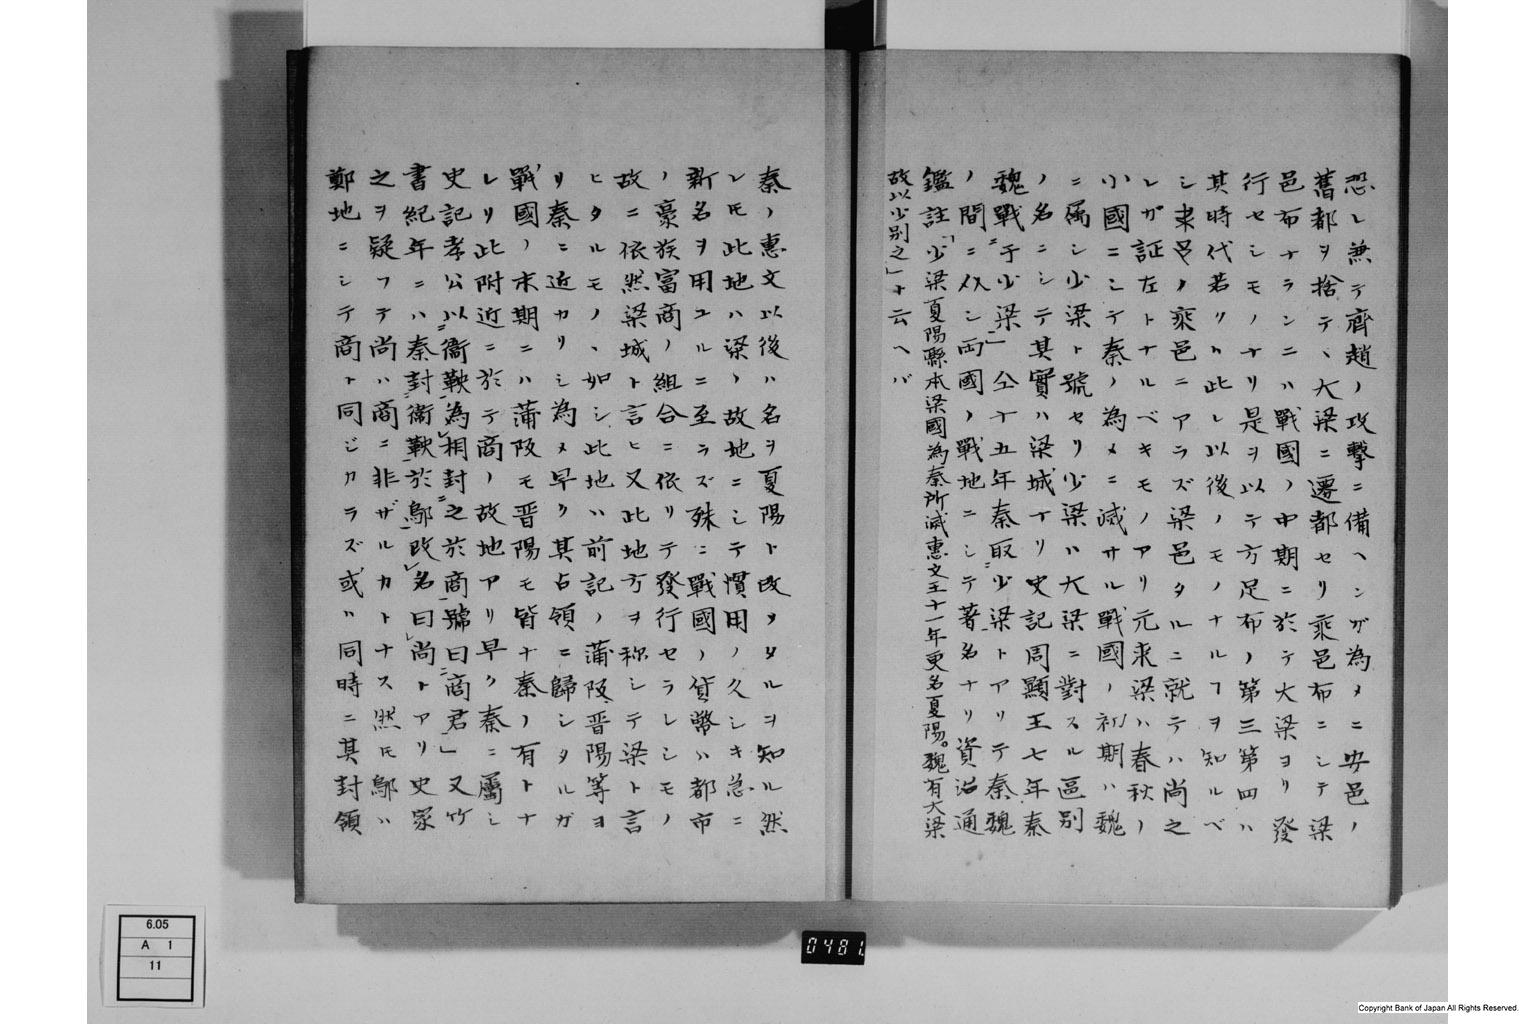 恐レ兼テ齊趙ノ攻撃ニ備ヘンガ為メニ安邑ノ
舊都ヲ捨テ、大梁ニ遷都セリ乘邑布ニシテ梁
邑布ナランニハ戰國ノ中期ニ於テ大梁ヨリ發
行セシモノナリ是ヲ以テ方足布ノ第三第四ハ
其時代若リカ此レ以後ノモノナルヿヲ知ルベ
シ耒邑ノ乘邑ニアラズ梁邑タルニ就テハ尚之
レガ証左トナルベキモノアリ元来梁ハ春秋ノ
小國ニシテ秦ノ為メニ滅サル戰國ノ初期ハ魏
ニ屬シ少梁ト號セリ少梁ハ大梁ニ對スル區別
ノ名ニシテ其實ハ梁城ナリ史記周顯王七年秦
魏戰于少梁」仝十五年秦取少梁トアリテ秦魏
ノ間ニ介シ両國ノ戰地ニシテ著名ナリ資治通
鑑註「少梁夏陽縣本梁國為秦所滅惠文王十一年更名夏陽。魏有大梁
故以少別之」ト云ヘバ
秦ノ惠文以後ハ名ヲ夏陽ト改メタルヲ知ル然
レモ此地ハ梁ノ故地ニシテ慣用ノ久シキ急ニ
新名ヲ用ユルニ至ラズ殊ニ戰國ノ貨幣ハ都市
ノ豪族富商ノ組合ニ依リテ發行セラレシモノ
故ニ依然梁城ト言ヒ又此地方ヲ称シテ梁ト言
ヒタルモノヽ如シ此地ハ前記ノ蒲阪晋陽等ヨ
リ秦ニ近カリシ為メ早ク其占領ニ歸シタルガ
戰國ノ末期ニハ蒲阪モ晋陽モ皆ナ秦ノ有トナ
レリ此附近ニ於テ商ノ故地アリ早ク秦ニ屬シ
史記孝公以衞鞅為相封之於商號曰商君」又竹
書紀年ニハ秦封衞鞅於鄔改名曰尚トアリ史家
之ヲ疑フテ尚ハ商ニ非ザルカトナス然モ鄔ハ
鄭地ニシテ商ト同ジカラズ或ハ同時ニ其封領
6.05
A 1
11
0481
Copyright Bank of Japan All Rights Reserved.